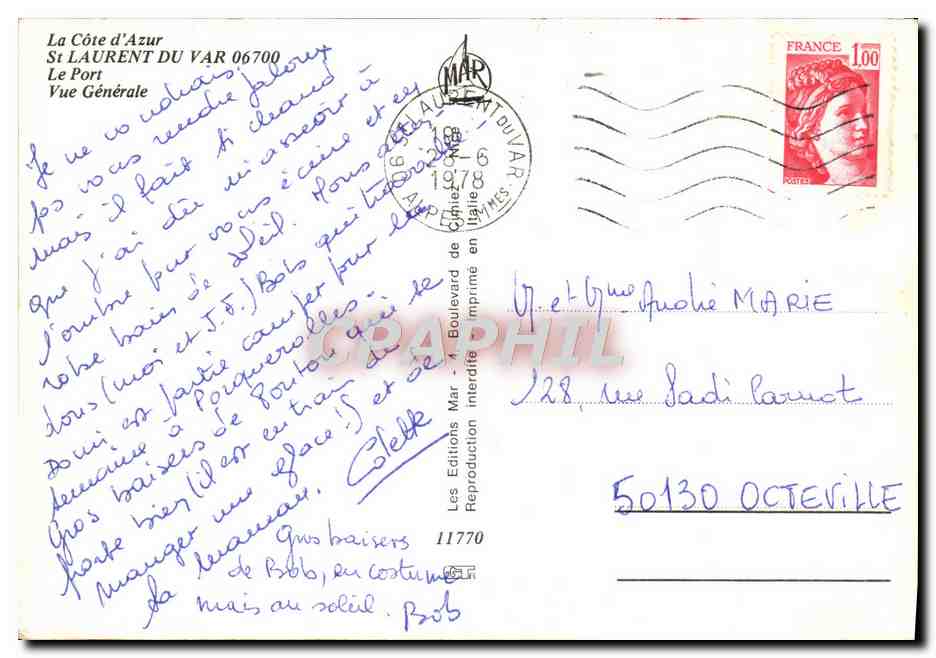 La Côte d'Azur
St LAURENT DU VAR 06700
Le Port
Vue Générale
Je ne voudrais
pas vous rendre jaloux
mais il fait si chaud
que j'ai dû m'asseoir à
l'ombre pour vous écrire et
votre bains de soleil. Nous
tous (moi et J.F.) Bob qui travaille
Domi est partie camper pour la
semaine à Porquerolles.
Gros baisers de qui se
porte bien (il est en train de
manger une glace!) et de
sa maman. Colette
Gros baisers
de Bob, en costume
mais au soleil. Bob
MAR
06 St LAURENT DU VAR
18 H
28-6
1978
ALPES-MMES
FRANCE
1,00
POSTES
Les Editions Mar - 1, Boulevard de Cimiez - Nice
Reproduction interdite - Imprimé en Italie
11770
M. et Mme André MARIE
128, rue Sadi Carnot
50130 OCTEVILLE
CPAPHIL